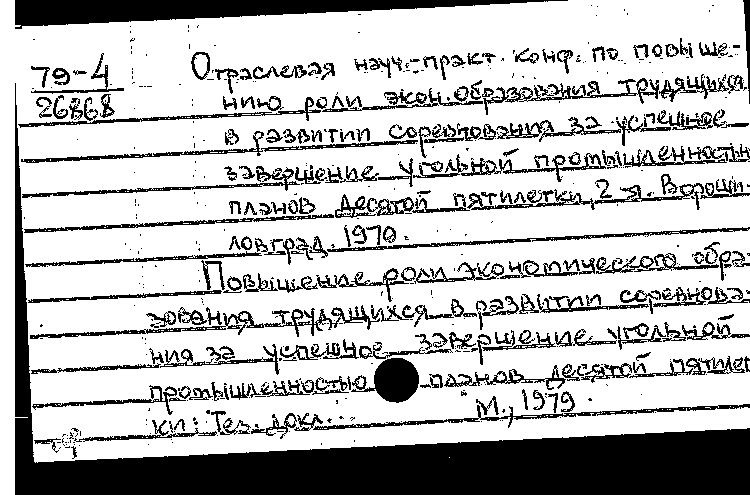 79-4
26868
Отраслевая науч.-практ. конф. по повыше-
нию роли экон. образования трудящихся
в развитии соревнования за успешное
завершение угольной промышленностью
планов десятой пятилетки, 2-я. Вороши-
ловград. 1970.
Повышение роли экономического обра-
зования трудящихся в развитии соревнова-
ния за успешное завершение угольной
промышленностью планов десятой пятилет
ки: Тез. докл... М., 1979.